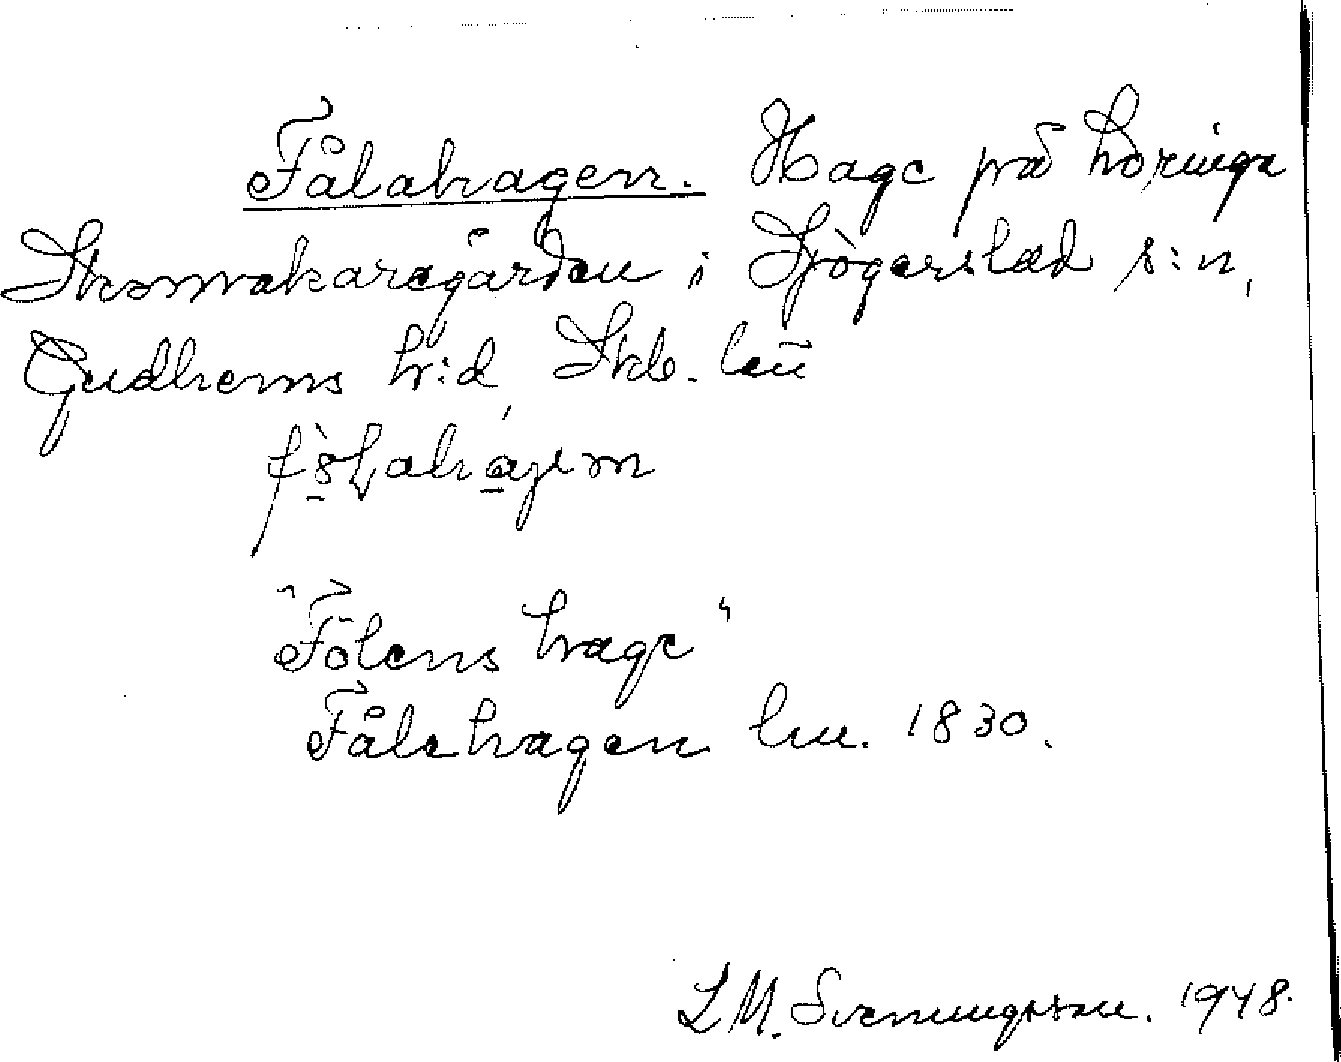 Fålahagen. Hage på Loringa
Skomakaregården i Sjögerstad s:n,
Gudhems h:d, Skb. län
"Fölens hage"
Fålahagen lm. 1830.
L M. Svenungsson. 1948.